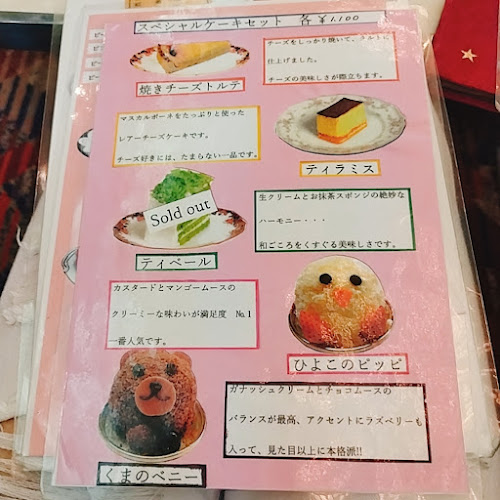 スペシャルケーキセット 各¥1,100
チーズをしっかり焼いて、タルトに
仕上げました。
チーズの美味しさが際立ちます。
焼きチーズトルテ
マスカルポーネをたっぷりと使った
レアーチーズケーキです。
チーズ好きには、たまらない一品です。
ティラミス
Sold out
生クリームとお抹茶スポンジの絶妙な
ハーモニー・・・
和ごころをくすぐる美味しさです。
ティベール
カスタードとマンゴームースの
クリーミーな味わいが満足度 №1
一番人気です。
ひよこのピッピ
ガナッシュクリームとチョコムースの
バランスが最高、アクセントにラズベリーも
入って、見た目以上に本格派!!
くまのベニー